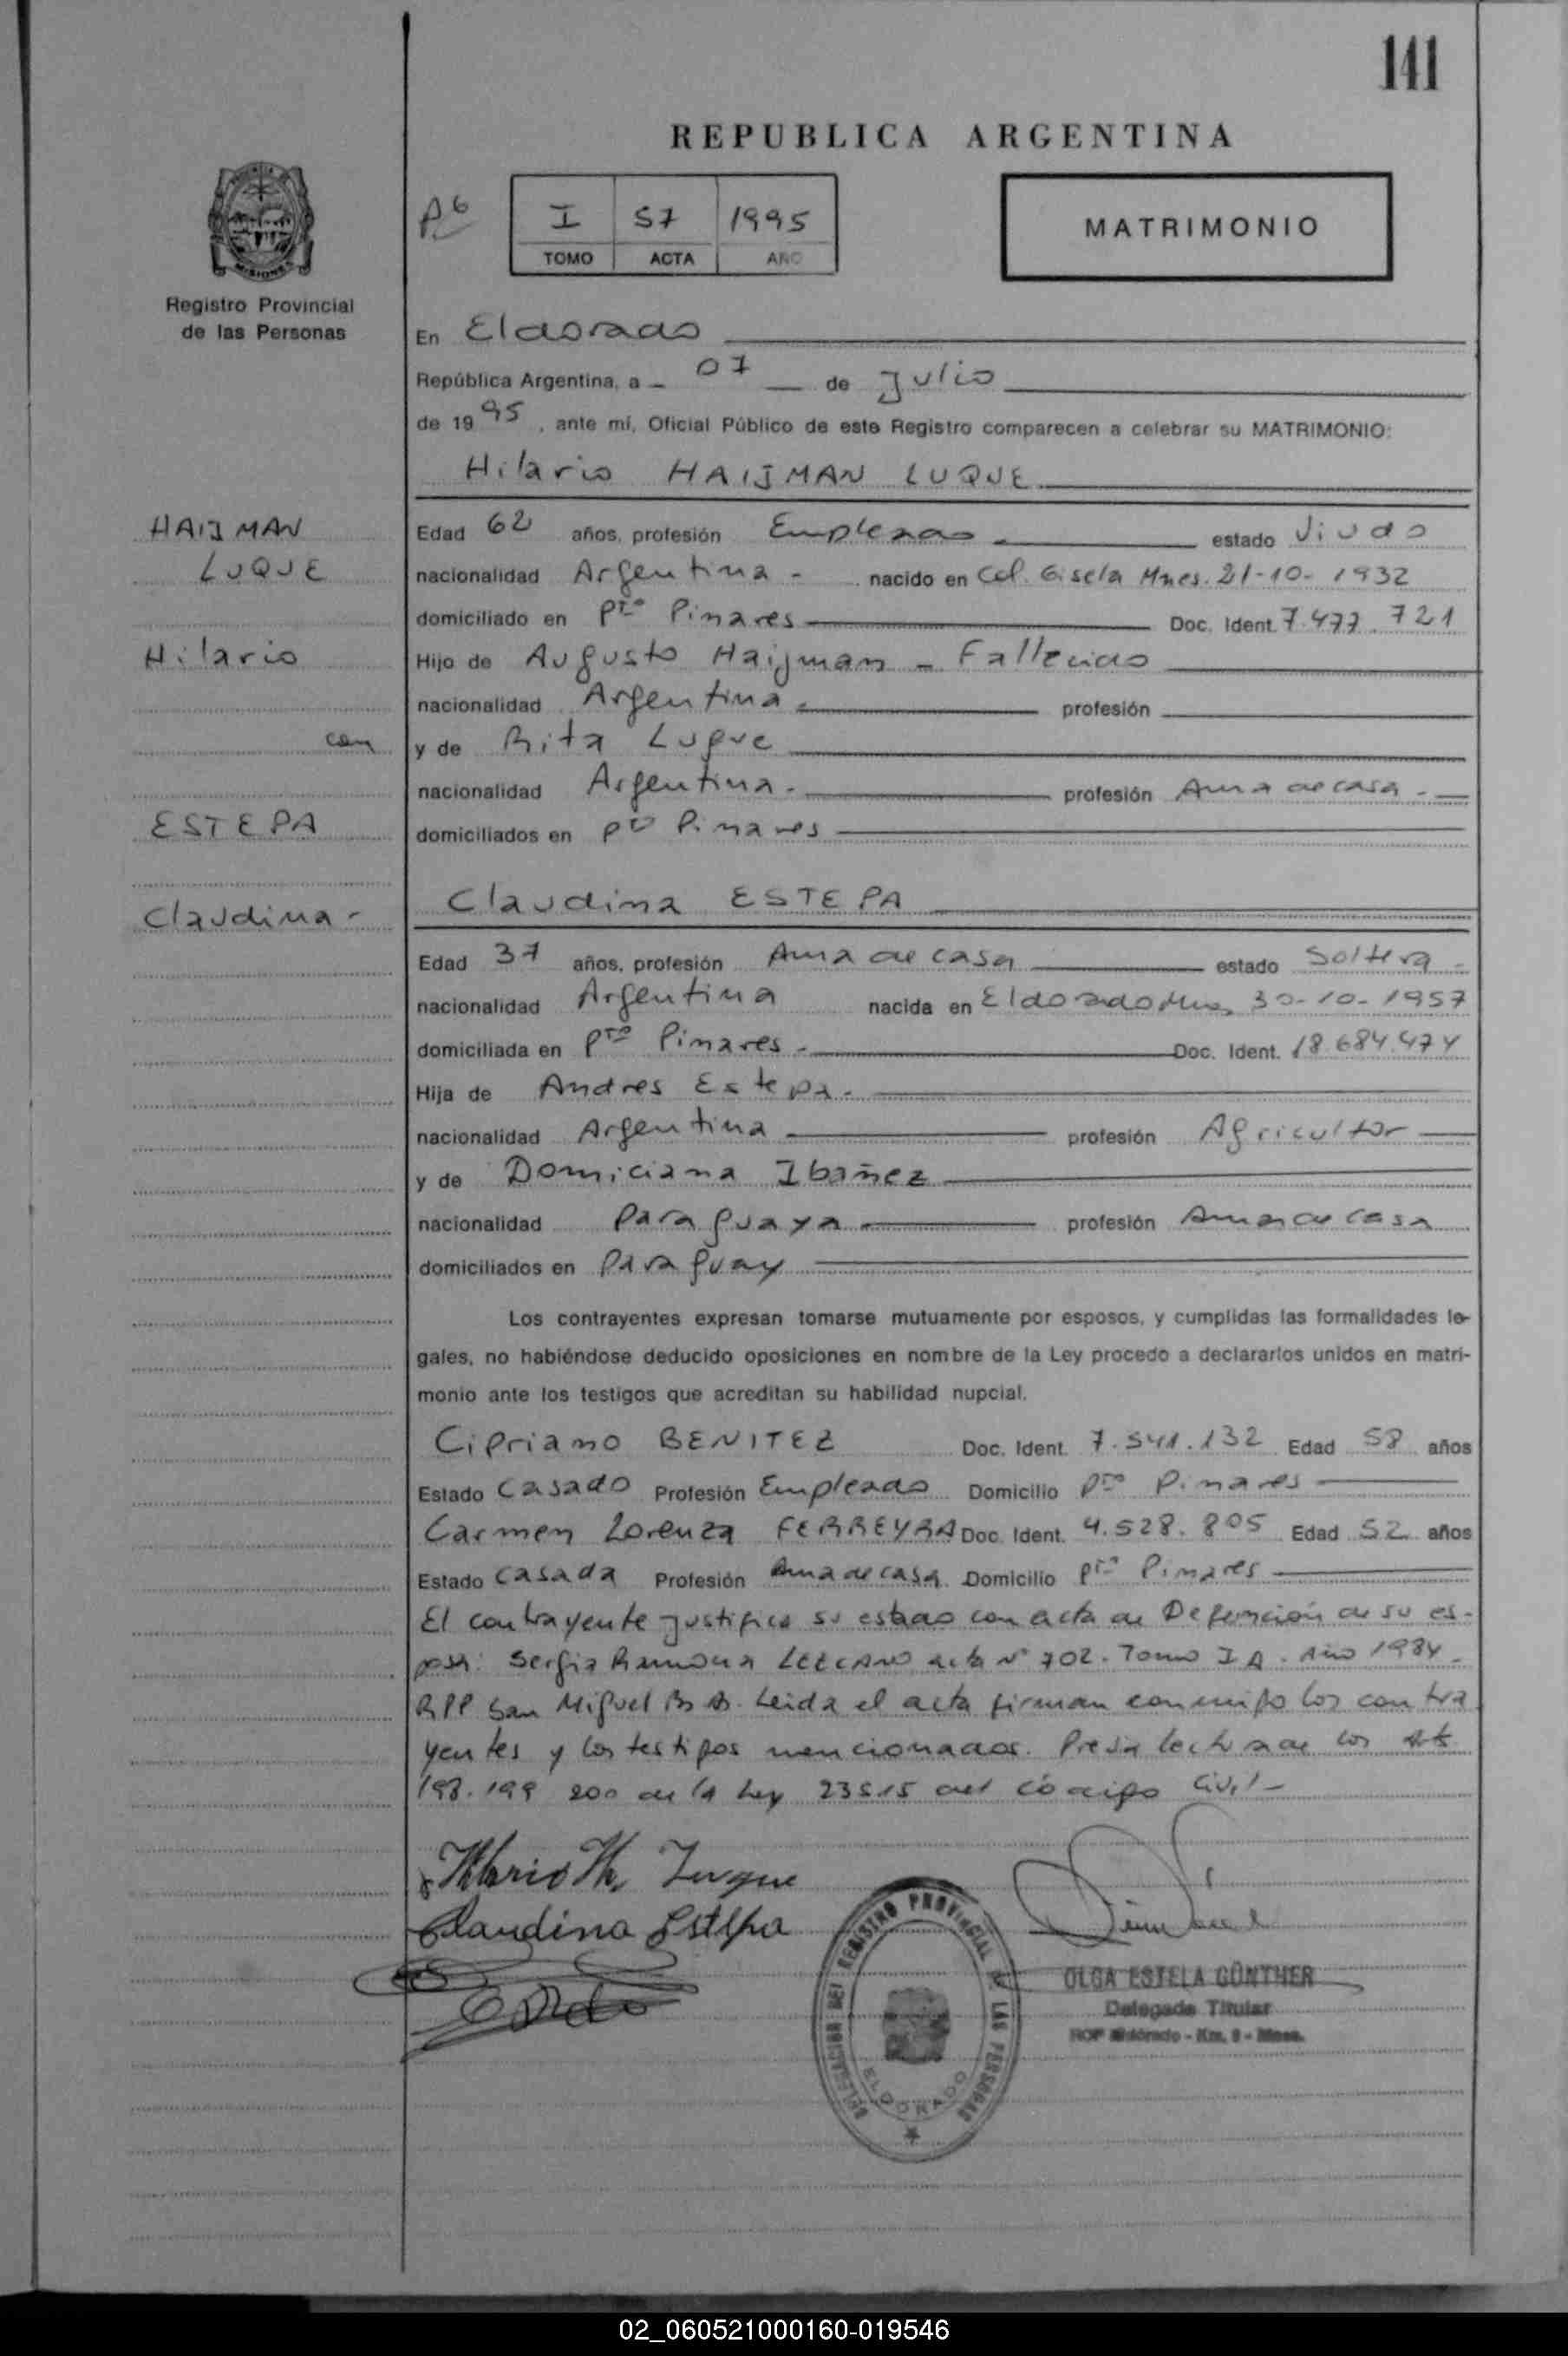 141
REPUBLICA ARGENTINA
I 57 1995
TOMO ACTA AÑO
MATRIMONIO
MISIONES
Registro Provincial
de las Personas
En Eldorado
República Argentina, a - 07 de Julio
de 1995, ante mí, Oficial Público de este Registro comparecen a celebrar su MATRIMONIO:
Hilario HAIJMAN LUQUE
HAIJMAN
LUQUE
Hilario
con
ESTEPA
Claudina -
Edad 62 años, profesión Empleado estado Viudo
nacionalidad Argentina - nacido en Col. Gisela Mnes. 21-10-1932
domiciliado en Pto Pinares Doc. Ident. 7.477.721
Hijo de Augusto Haijman - Fallecido
nacionalidad Argentina. profesión
y de Rita Luque
nacionalidad Argentina. profesión Ama de casa -
domiciliados en Pto Pinares
Claudina ESTEPA
Edad 37 años, profesión Ama de casa estado Soltera -
nacionalidad Argentina nacida en Eldorado Mnes 30-10-1957
domiciliada en Pto Pinares. Doc. Ident. 18.684.474
Hija de Andres Estepa.
nacionalidad Argentina profesión Agricultor
y de Domiciana Ibañez
nacionalidad Paraguaya profesión Ama de casa
domiciliados en Paraguay
Los contrayentes expresan tomarse mutuamente por esposos, y cumplidas las formalidades le-
gales, no habiéndose deducido oposiciones en nombre de la Ley procedo a declararlos unidos en matri-
monio ante los testigos que acreditan su habilidad nupcial.
Cipriano BENITEZ Doc. Ident. 7.541.132 Edad 58 años
Estado Casado Profesión Empleado Domicilio Pto Pinares
Carmen Lorenza FERREYRA Doc. Ident. 4.528.805 Edad 52 años
Estado Casada Profesión Ama de casa Domicilio Pto Pinares
El contrayente justifica su estado con acta de Defunción de su es-
posa: Sergia Ramona LEZCANO acta N° 702. Tomo I A. Año 1984.
RPP San Miguel Bs As. Leida el acta firman conmigo los contra
yentes y los testigos mencionados. Previa lectura de los Arts
198. 199 200 de la Ley 23515 del código Civil -
Hilario H. Luque
Claudina Estepa
DELEGACION DEL REGISTRO PROVINCIAL DE LAS PERSONAS
ELDORADO
OLGA ESTELA GÜNTHER
Delegada Titular
Eldorado - Km. 9 - Mnes.
02_060521000160-019546